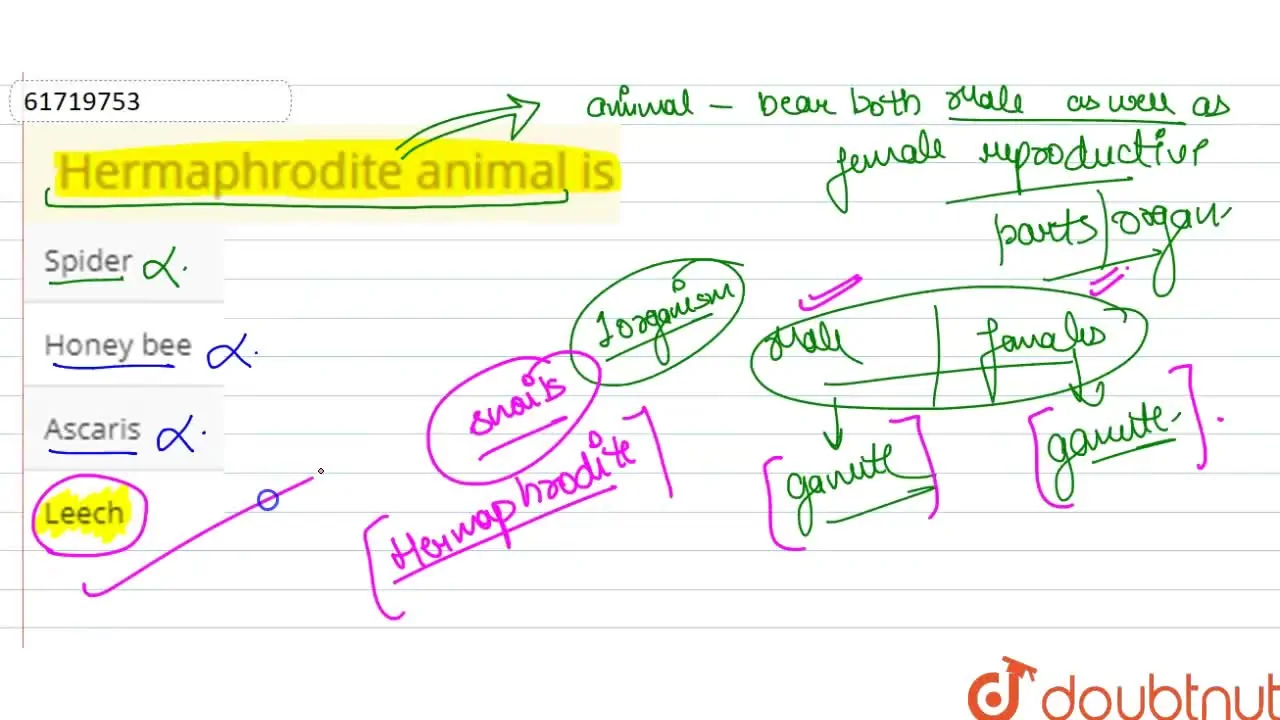 61719753
animal – bear both Male as well as
Hermaphrodite animal is
female reproductive
parts/organ
Spider
1 organism
Male females
Honey bee
snails
Ascaris
gamete gamete
Hermaphrodite
Leech
doubtnut